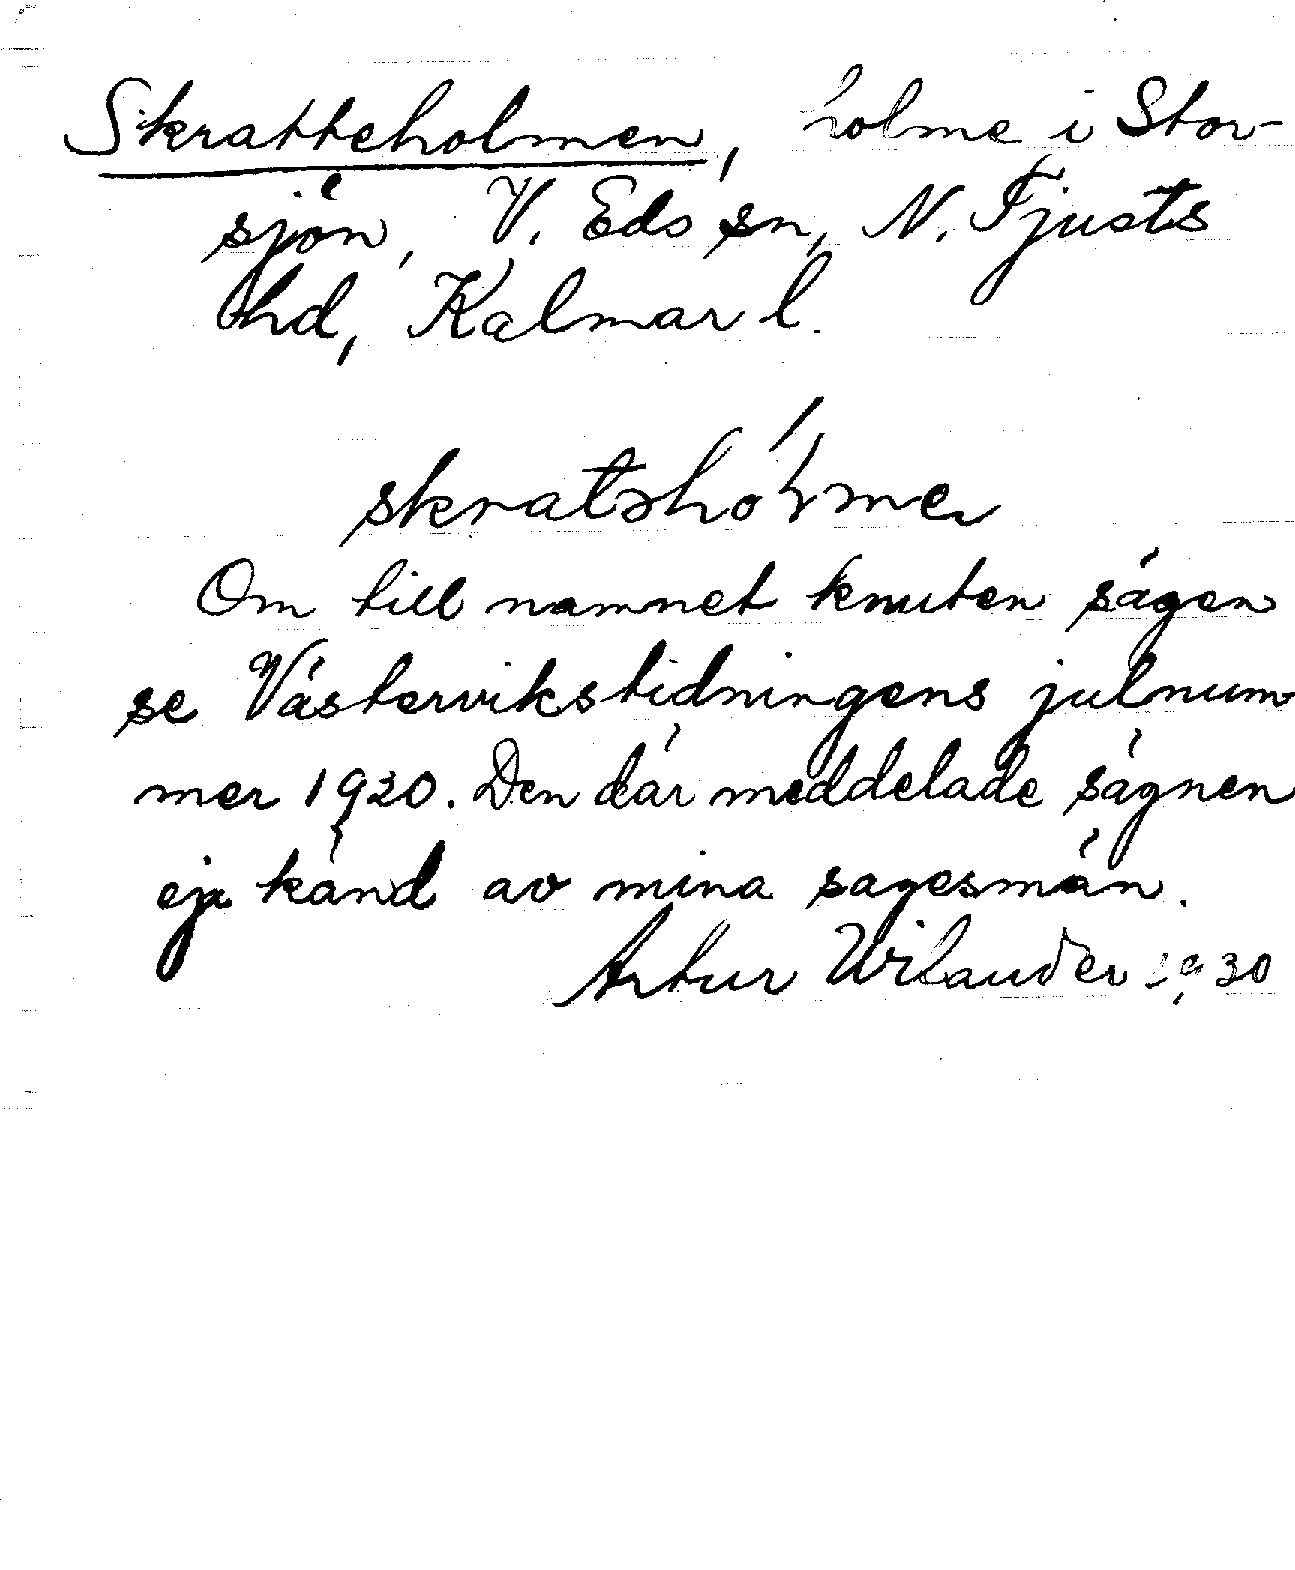 Skratteholmen, holme i Stor-
sjön, V. Eds sn, N. Tjusts
hd, Kalmar l.
Om till namnet knuten sägen
se Västervikstidningens julnum
mer 1920. Den där meddelade sägnen
ej känd av mina sagesmän.
Artur Wilander 1930